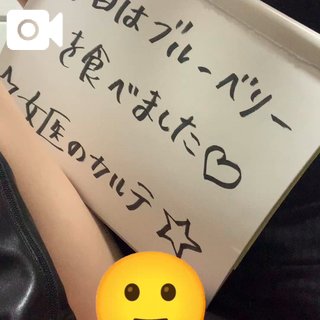 日はブルーベリー
を食べました♡
女医のカルテ☆